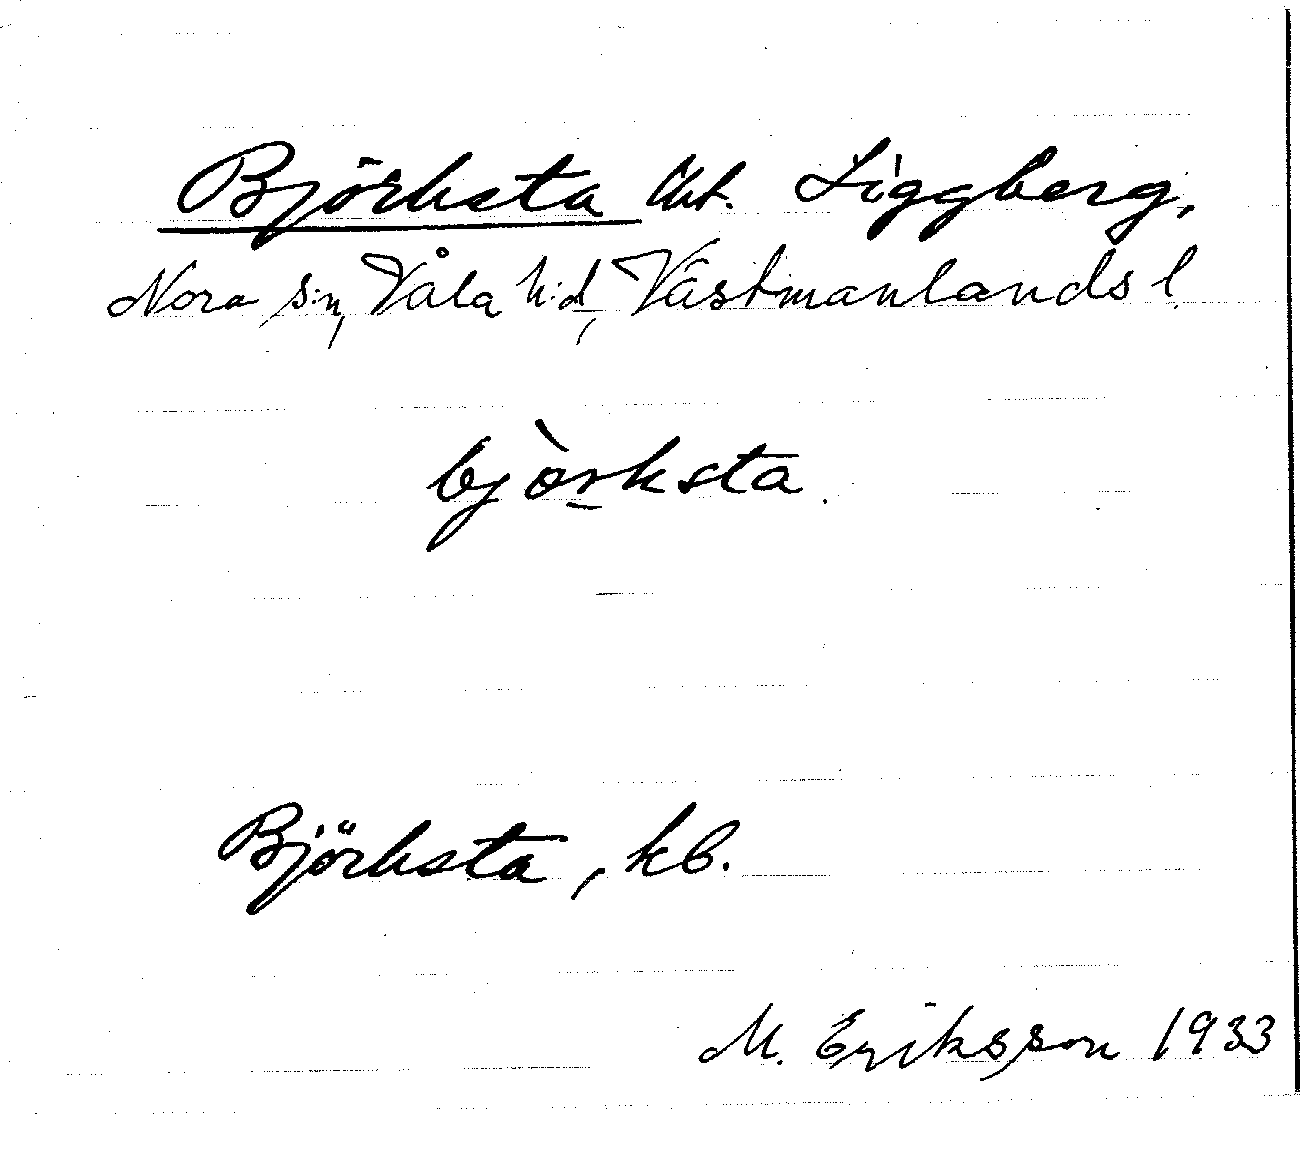 Björksta tht. Liggberg,
Nora s:n, Våla h:d, Västmanlands l.
bjòrksta.
Björksta, kb.
M. Eriksson 1933